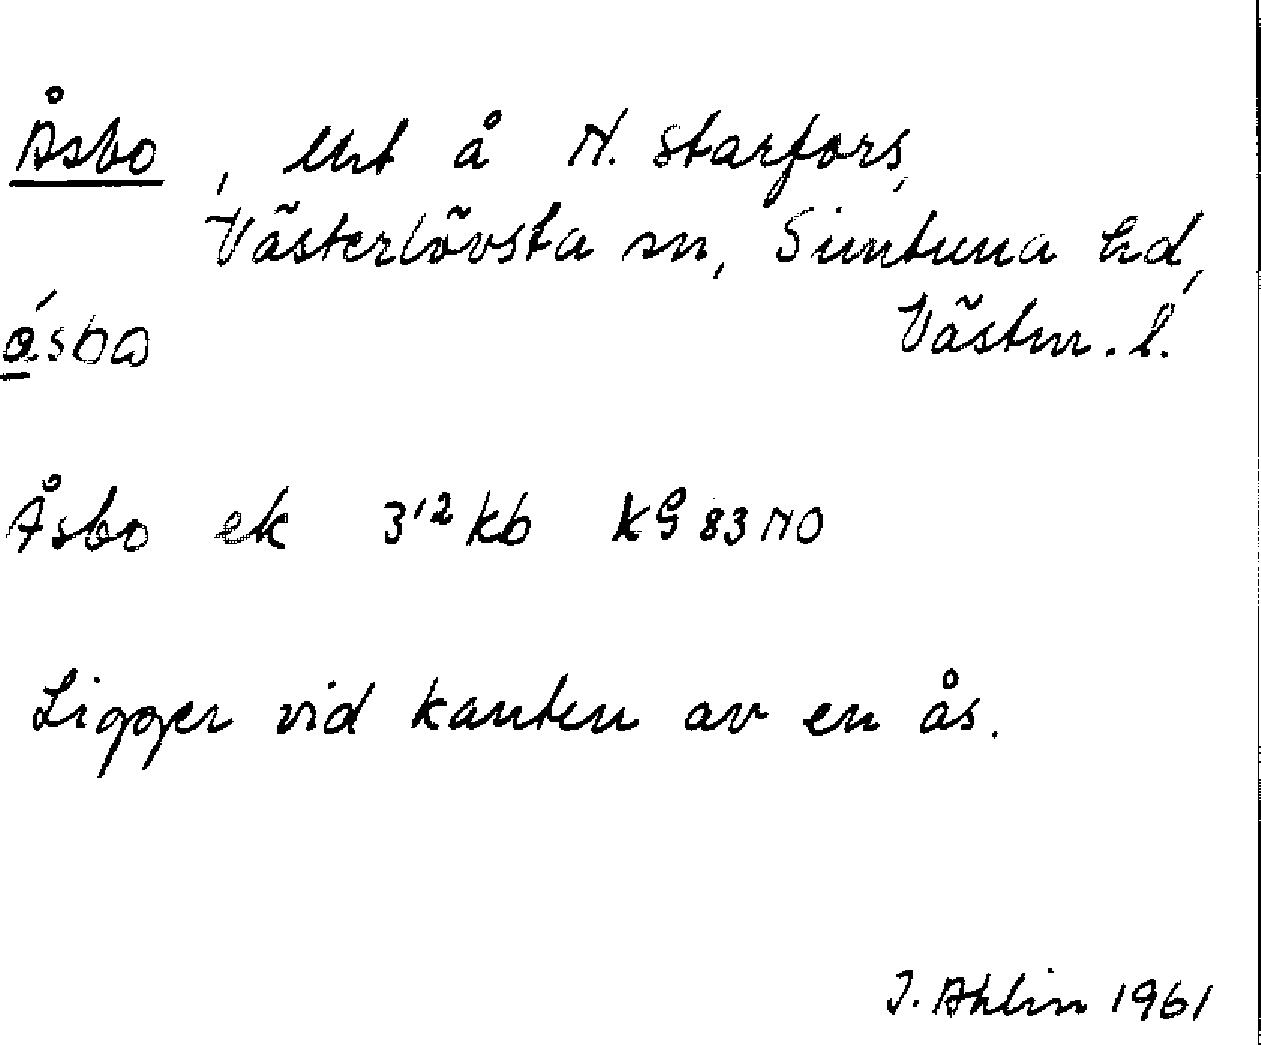 Åsbo, lht å N. Starfors,
Västerlövsta sn, Simtuna hd,
Västm. l.
åsbo
Åsbo ek 3'2 kb KG 83 NO
Ligger vid kanten av en ås.
J. Ahlin 1961